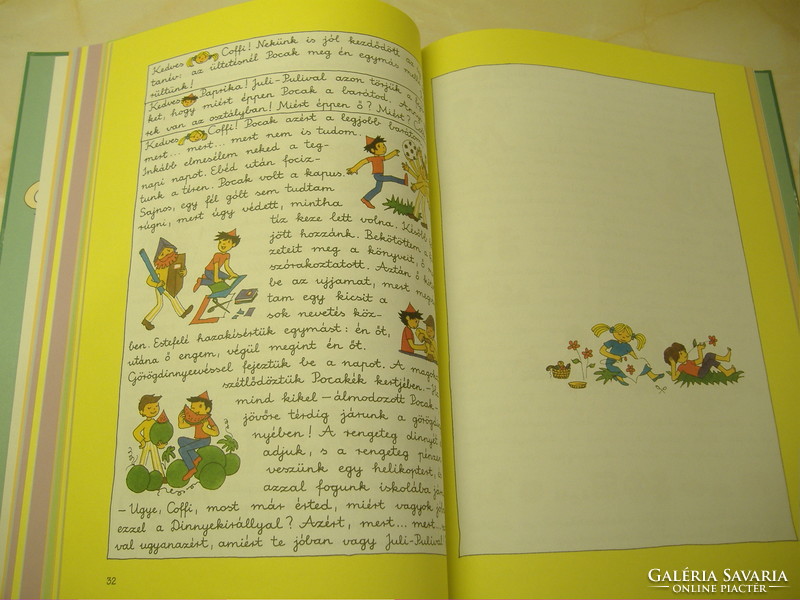 Kedves Coffi! Nekünk is jól kezdődött
tanév: az ültetésnél Pocak meg én egymás mellé
rültünk!
Kedves Paprika! Juli-Pulival azon törjük a
ket, hogy miért éppen Pocak a barátod.
rek van az osztályban! Miért éppen ő? Miért?
Kedves Coffi! Pocak azért a legjobb barátom
mert... mert... mert nem is tudom.
Inkább elmesélem neked a teg-
napi napot. Ebéd után fociz-
tunk a téren. Pocak volt a kapus.
Sajnos, egy fél gólt sem tudtam
rúgni, mert úgy védett, mintha
tíz keze lett volna. Később
jött hozzánk. Bekötöttem a
zeteit meg a könyveit, ő
szórakoztatott. Aztán ő
be az ujjamat, mert
tam egy kicsit a
sok nevetés köz-
ben. Estefelé hazakísértük egymást: én őt,
utána ő engem, végül megint én őt.
Görögdinnyeevéssel fejeztük be a napot. A
szétlődöztük Pocakék kertjében.
mind kikel – álmodozott Pocak
jövőre térdig járunk a görög
nyében! A rengeteg dinnyét
adjuk, s a rengeteg pénzen
veszünk egy helikoptert,
azzal fogunk iskolába
– Ugye, Coffi, most már érted, miért vagyok
ezzel a Dinnyekirállyal? Azért, mert... mert...
val ugyanazért, amiért te jóban vagy Juli-Pulival
32
GALÉRIA SAVARIA
ONLINE PIACTÉR